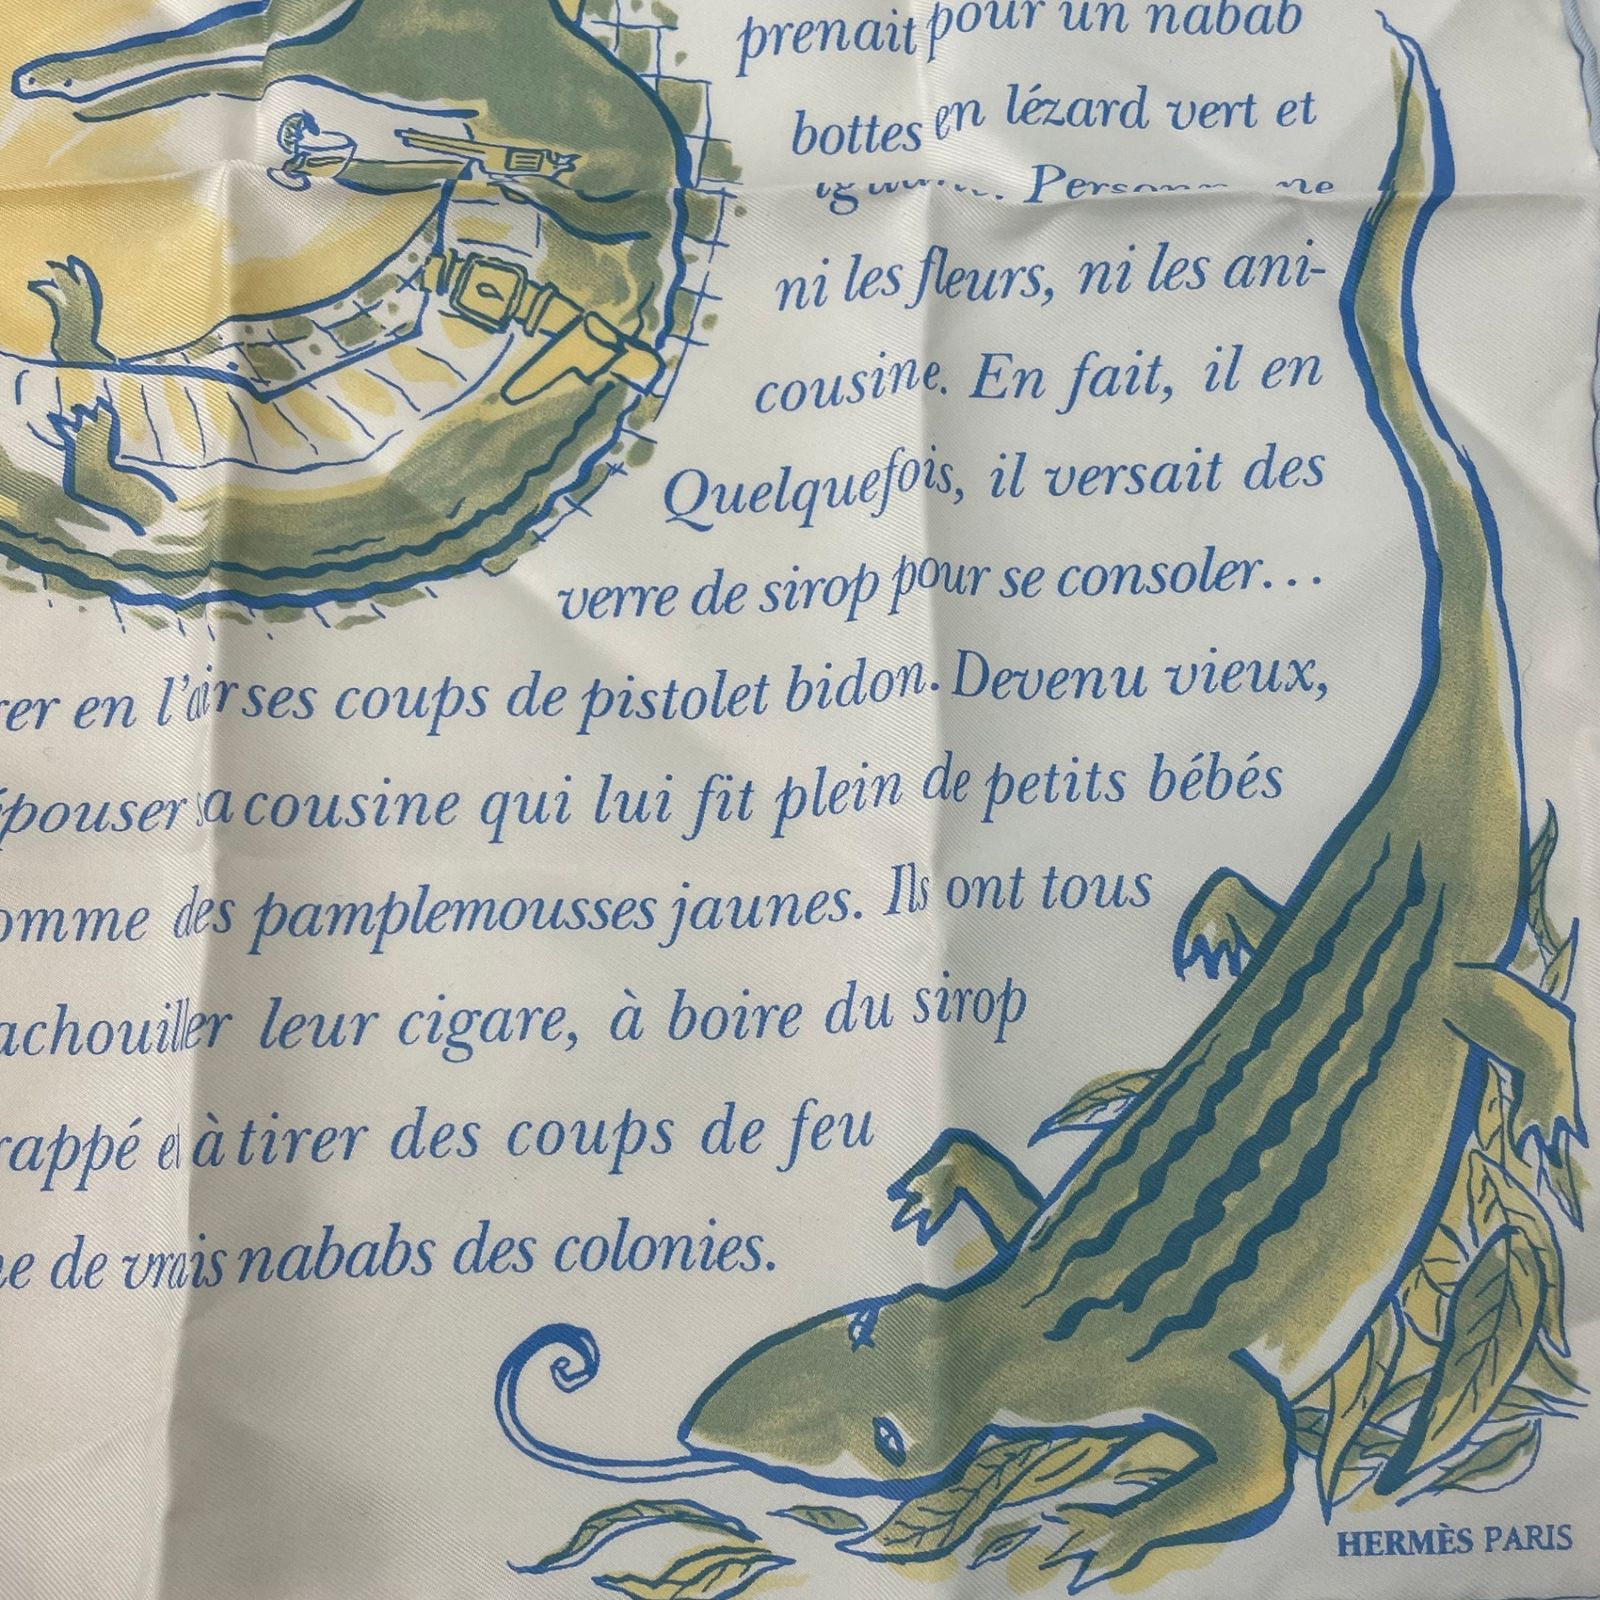 prenait pour un nabab
bottes en lézard vert et
ni les fleurs, ni les ani-
cousine. En fait, il en
Quelquefois, il versait des
verre de sirop pour se consoler...
rer en l'air ses coups de pistolet bidon. Devenu vieux,
épouser sa cousine qui lui fit plein de petits bébés
omme des pamplemousses jaunes. Ils ont tous
achouiller leur cigare, à boire du sirop
rappé et à tirer des coups de feu
ne de vrais nababs des colonies.
HERMÈS PARIS